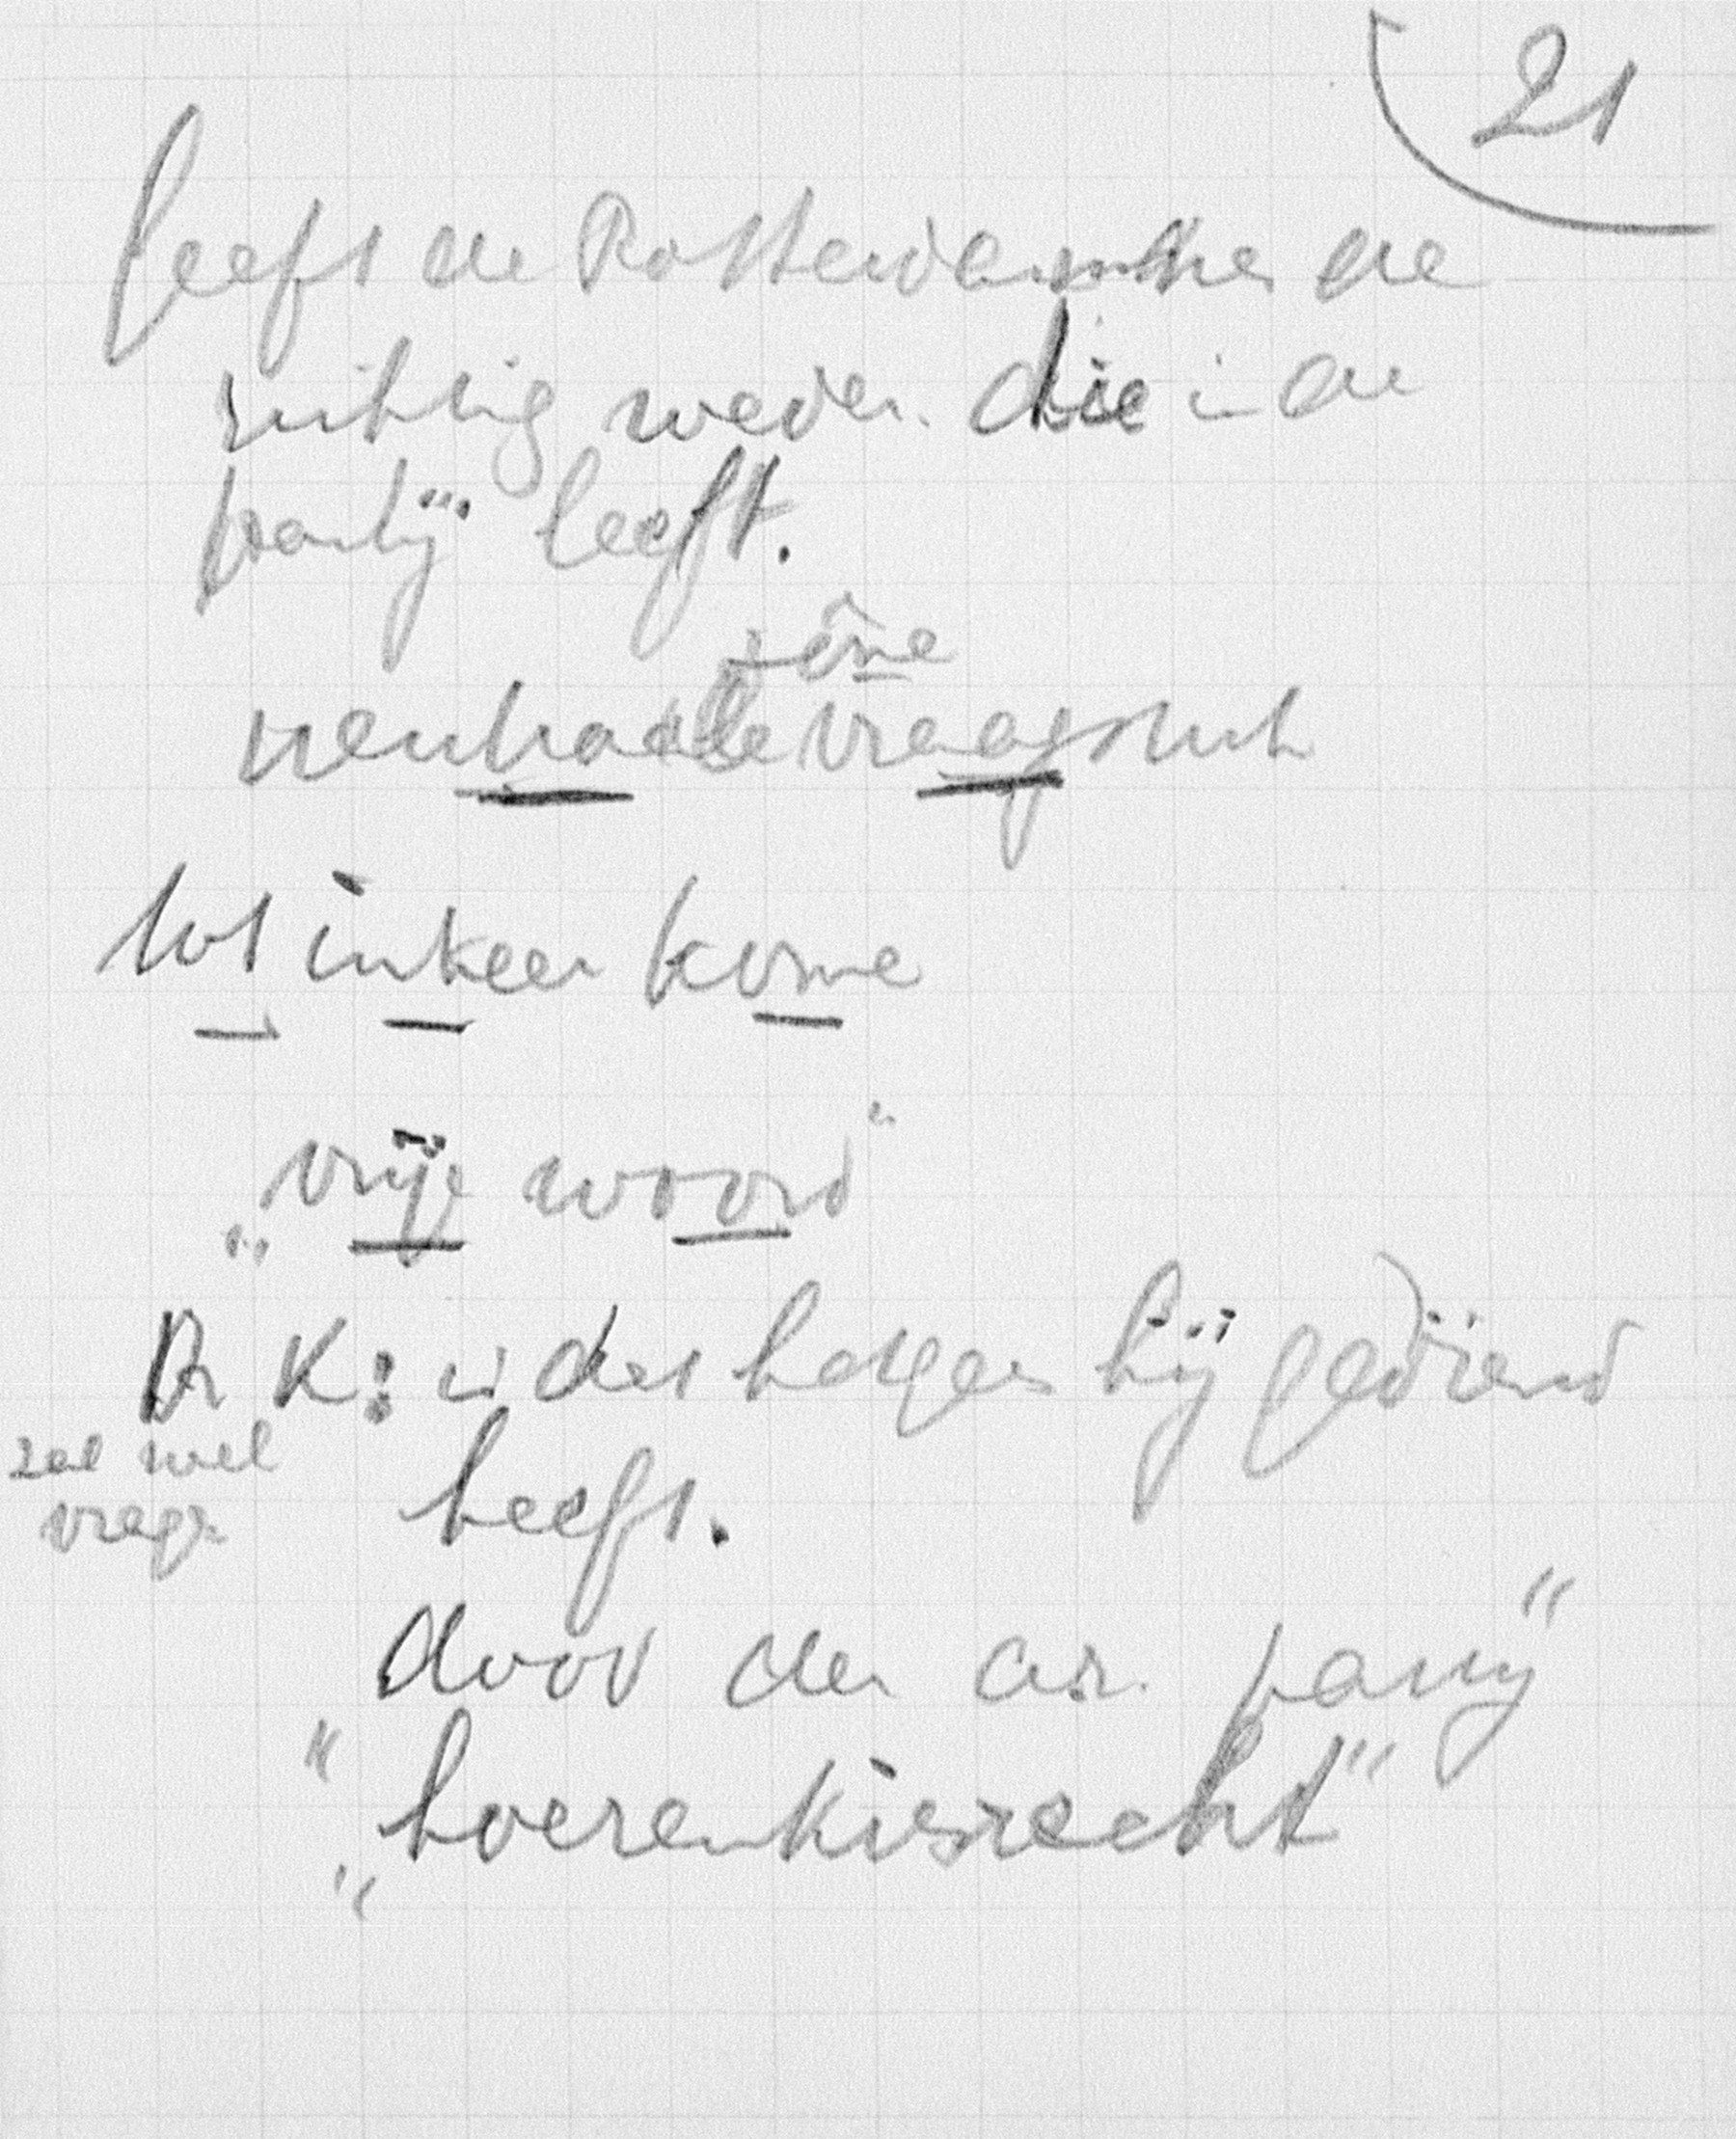 21
geeft de Rotterdamsche de
richting weder die in de
partij leeft.
zône
neutraale vraagstuk
tot inkeer kome
„vrije woord"
Dr K: is dat hetgeen hij gediend
zal wel
vrage
heeft.
door der a.r. partij"
"hoerenkiesrecht"